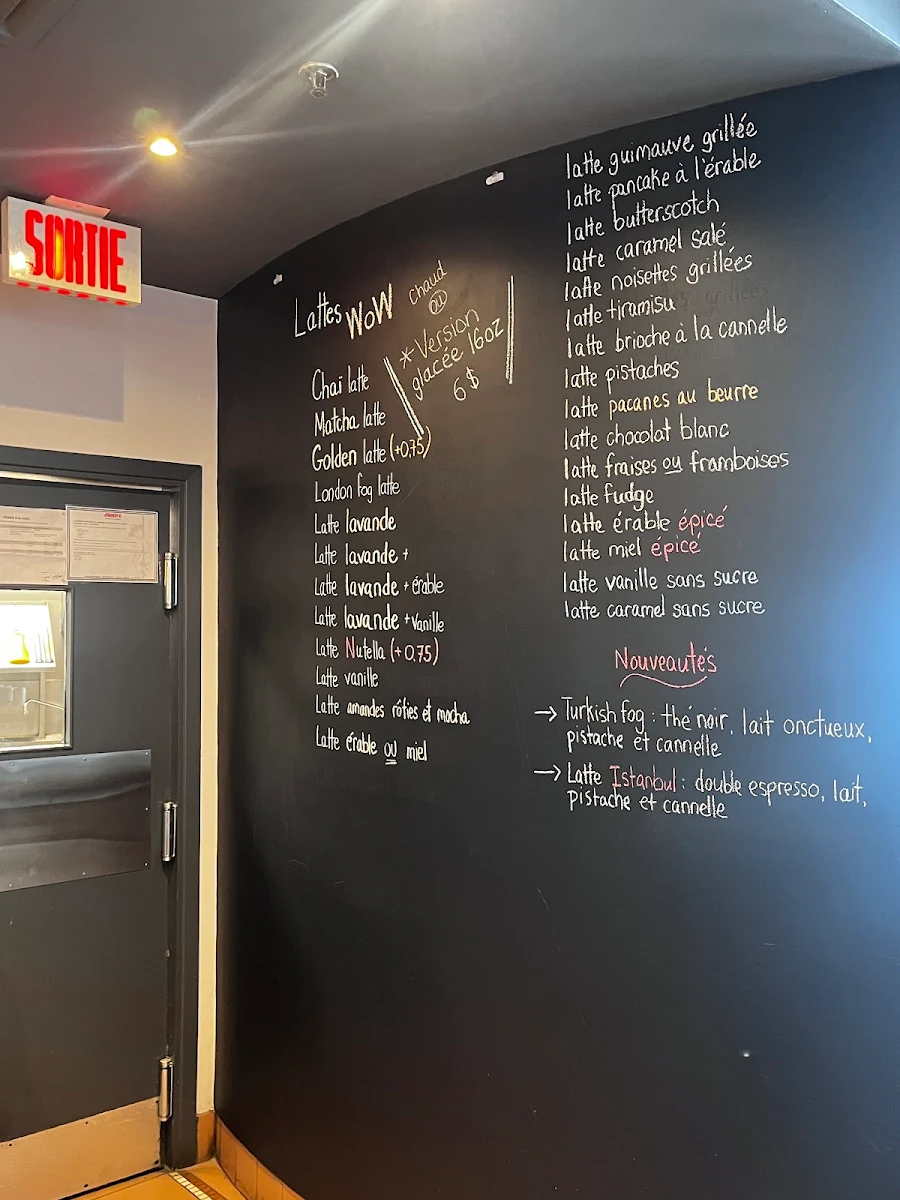 SORTIE
Lattes WOW
chaud
ou
*Version
glacée 16oz
6$
Chaï latte
Matcha latte
Golden latte (+0,75)
London fog latte
Latte lavande
Latte lavande +
Latte lavande + érable
Latte lavande + vanille
Latte Nutella (+0,75)
Latte vanille
Latte amandes rôties et mocha
Latte érable ou miel
latte guimauve grillée
latte pancake à l'érable
latte butterscotch
latte caramel salé
latte noisettes grillées
latte tiramisu
latte brioche à la cannelle
latte pistaches
latte pacanes au beurre
latte chocolat blanc
latte fraises ou framboises
latte fudge
latte érable épicé
latte miel épicé
latte vanille sans sucre
latte caramel sans sucre
Nouveautés
→ Turkish fog : thé noir, lait onctueux,
pistache et cannelle
→ Latte Istanbul : double espresso, lait,
pistache et cannelle